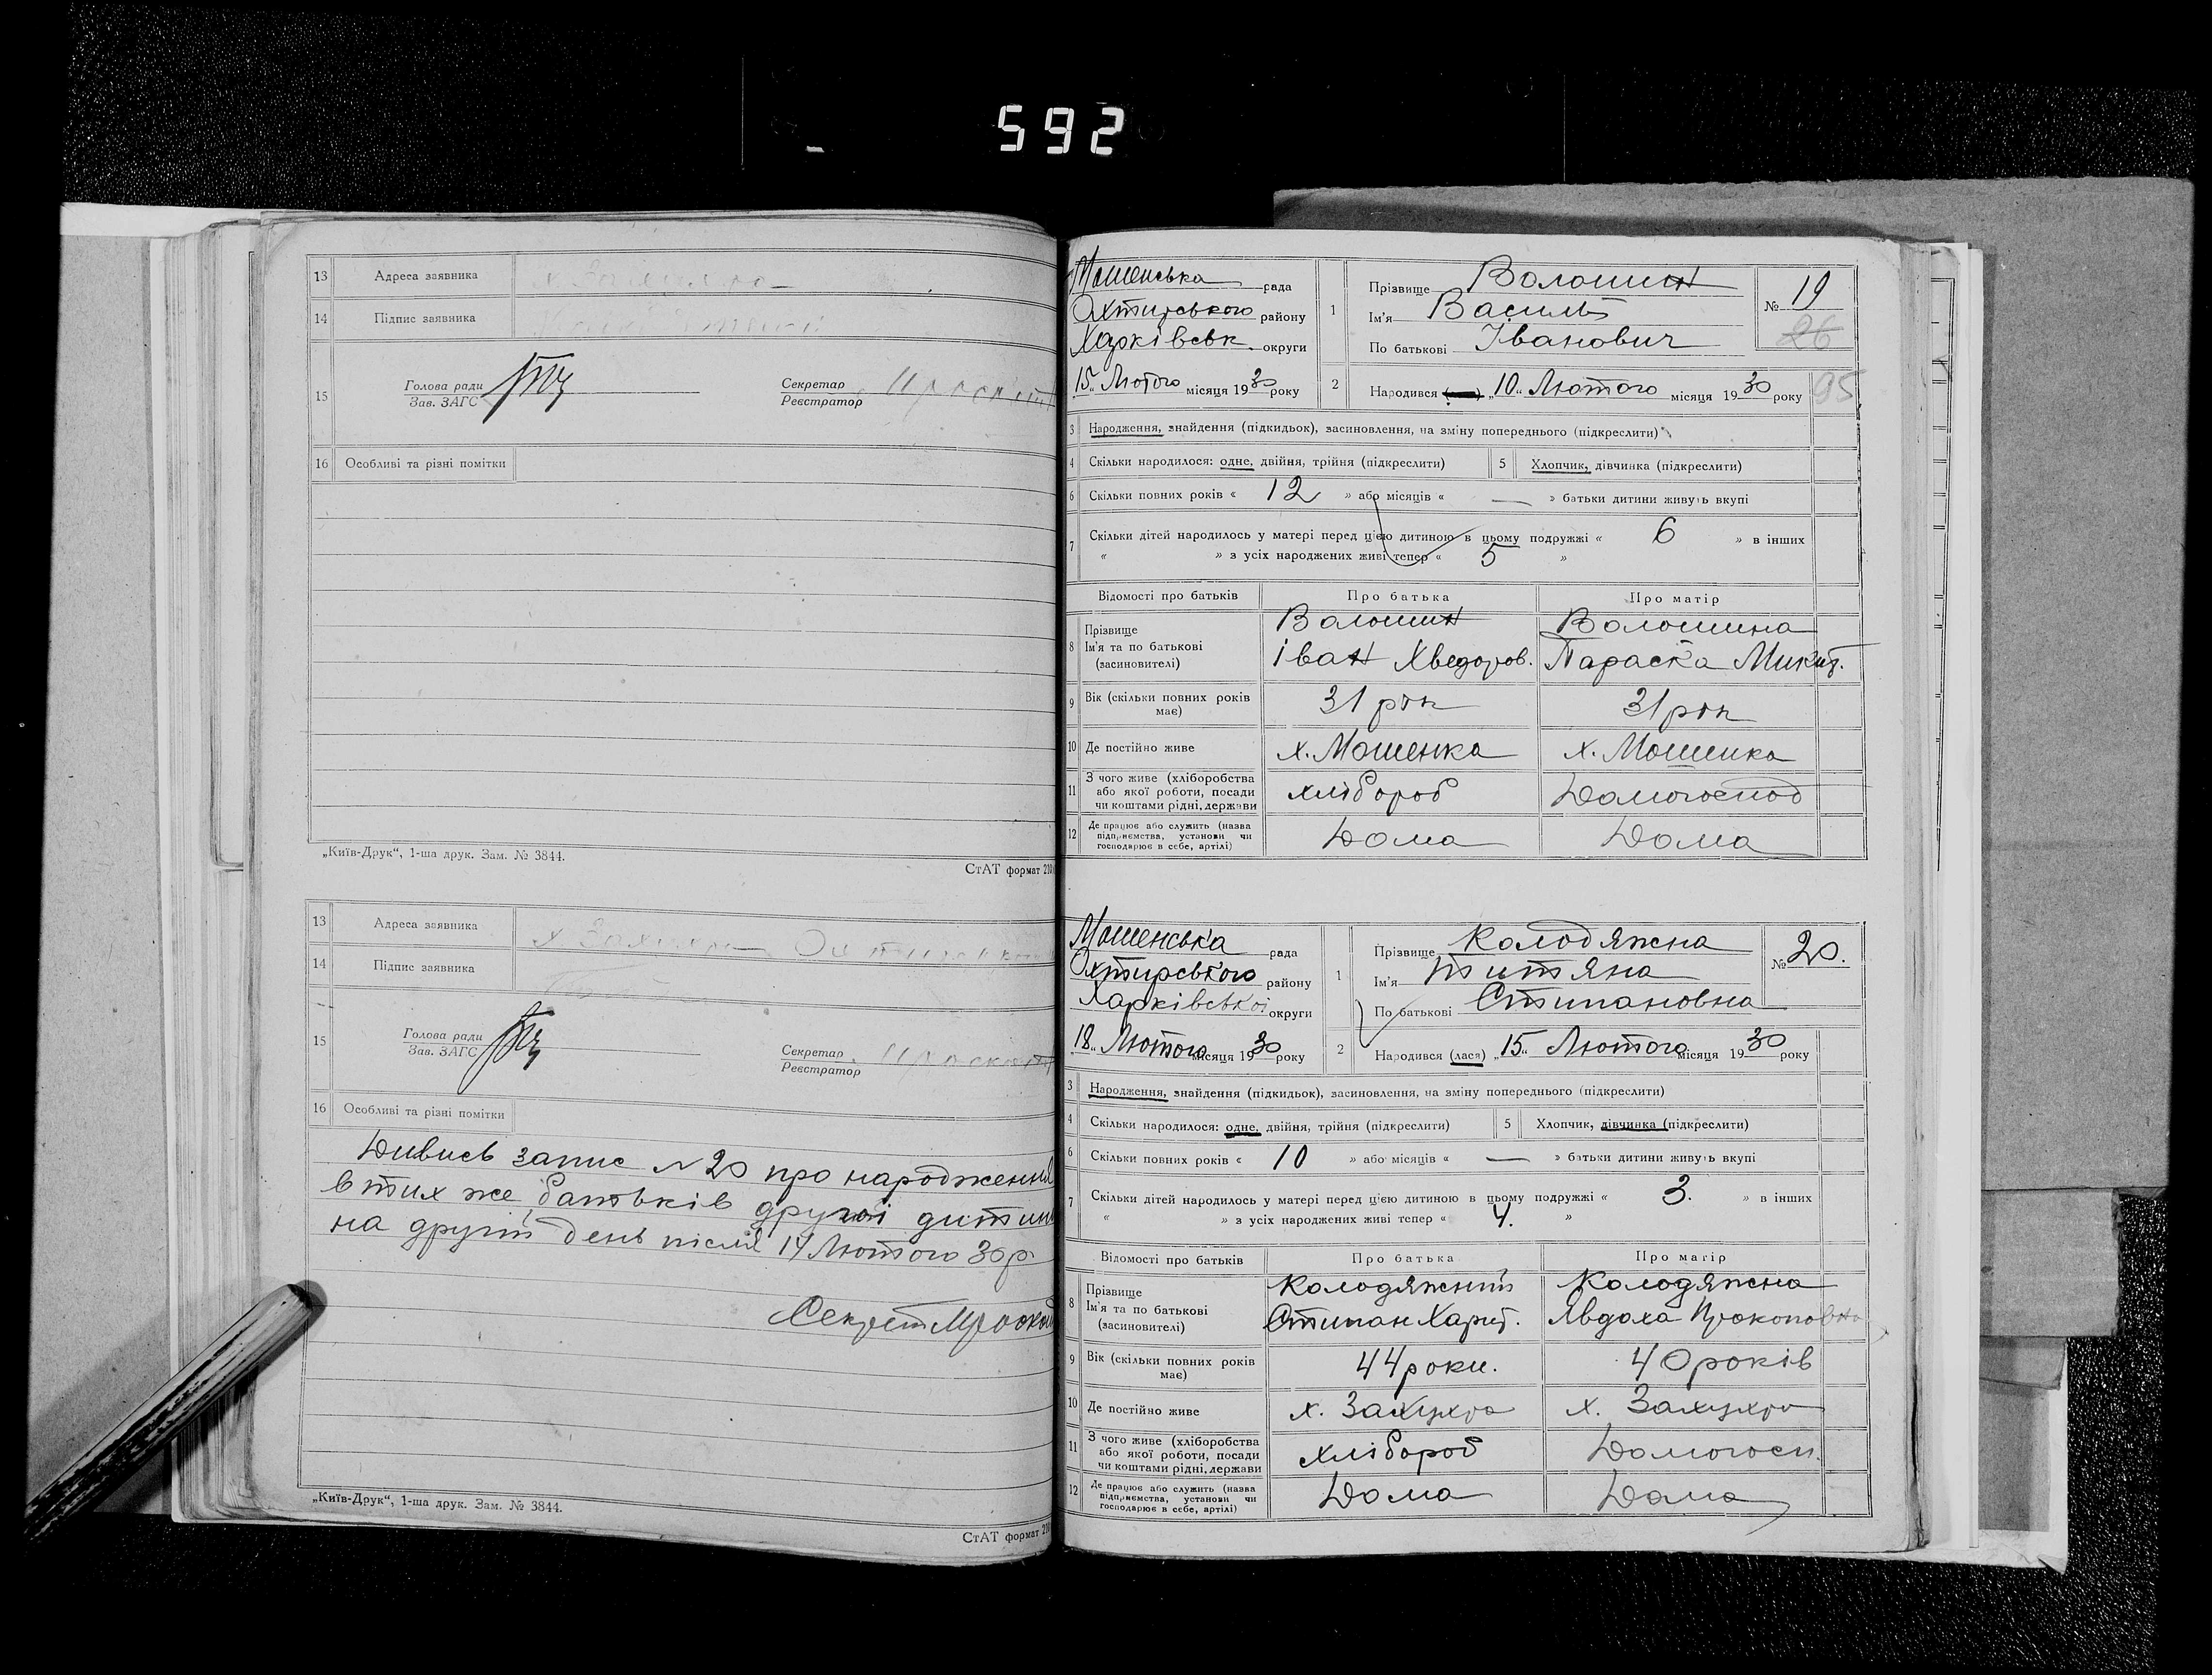 592
13 Адреса заявника
14 Підпис заявника
15 Голова ради
Зав. ЗАГС
Секретар
Реєстратор
16 Особливі та різні помітки
„Київ-Друк“, 1-ша друк. Зам. № 3844.
СтАТ формат 210
13 Адреса заявника х
14 Підпис заявника
15 Голова ради
Зав. ЗАГС
Секретар
Реєстратор
16 Особливі та різні помітки
Дивись запис N 20 про народження
в тих же батьків другої дитини
на другий день після 14 Лютого 30 р.
Секрет
„Київ-Друк“, 1-ша друк. Зам. № 3844.
СтАТ формат 210
Мошенська рада
Охтирського району
Харківськ. округи
15 „ Лютого місяця 1930 року
1 Прізвище Волошин
Ім'я Василь
По батькові Іванович
№ 19
26
95
2 Народився „10„ Лютого місяця 1930 року
3 Народження, знайдення (підкидьок), засиновлення, на зміну попереднього (підкреслити)
4 Скільки народилося: одне, двійня, трійня (підкреслити) 5 Хлопчик, дівчинка (підкреслити)
6 Скільки повних років « 12 » або місяців « — » батьки дитини живуть вкупі
7 Скільки дітей народилось у матері перед цією дитиною в цьому подружжі « 6 » в інших
« » з усіх народжених живі тепер « 5 »
Відомості про батьків Про батька Про матір
8 Прізвище Волошин Волошина
Ім'я та по батькові Іван Хведоров. Параска Микит.
(засиновителі)
9 Вік (скільки повних років має) 31 рік 31 рік
10 Де постійно живе х. Мошенка х. Мошенка
11 З чого живе (хліборобства або якої роботи, посади чи коштами рідні, держави хлібороб Домогоспод
12 Де працює або служить (назва підприємства, установи чи господарює в себе, артілі) Дома Дома
Мошенська рада
Охтирського району
Харківської округи
18 „ Лютого місяця 1930 року
1 Прізвище Колодяжна
Ім'я Титяна
По батькові Стипановна
№ 20.
2 Народився (лася) „15„ Лютого місяця 1930 року
3 Народження, знайдення (підкидьок), засиновлення, на зміну попереднього (підкреслити)
4 Скільки народилося: одне, двійня, трійня (підкреслити) 5 Хлопчик, дівчинка (підкреслити)
6 Скільки повних років « 10 » або місяців « — » батьки дитини живуть вкупі
7 Скільки дітей народилось у матері перед цією дитиною в цьому подружжі « 3. » в інших
« » з усіх народжених живі тепер « 4. »
Відомості про батьків Про батька Про матір
8 Прізвище Колодяжний Колодяжна
Ім'я та по батькові Стипан Харит. Явдоха Прокоповна
(засиновителі)
9 Вік (скільки повних років має) 44 роки. 40 років
10 Де постійно живе х. Захухра х. Захухра
11 З чого живе (хліборобства або якої роботи, посади чи коштами рідні, держави хлібороб Домогосп.
12 Де працює або служить (назва підприємства, установи чи господарює в себе, артілі) Дома Дома